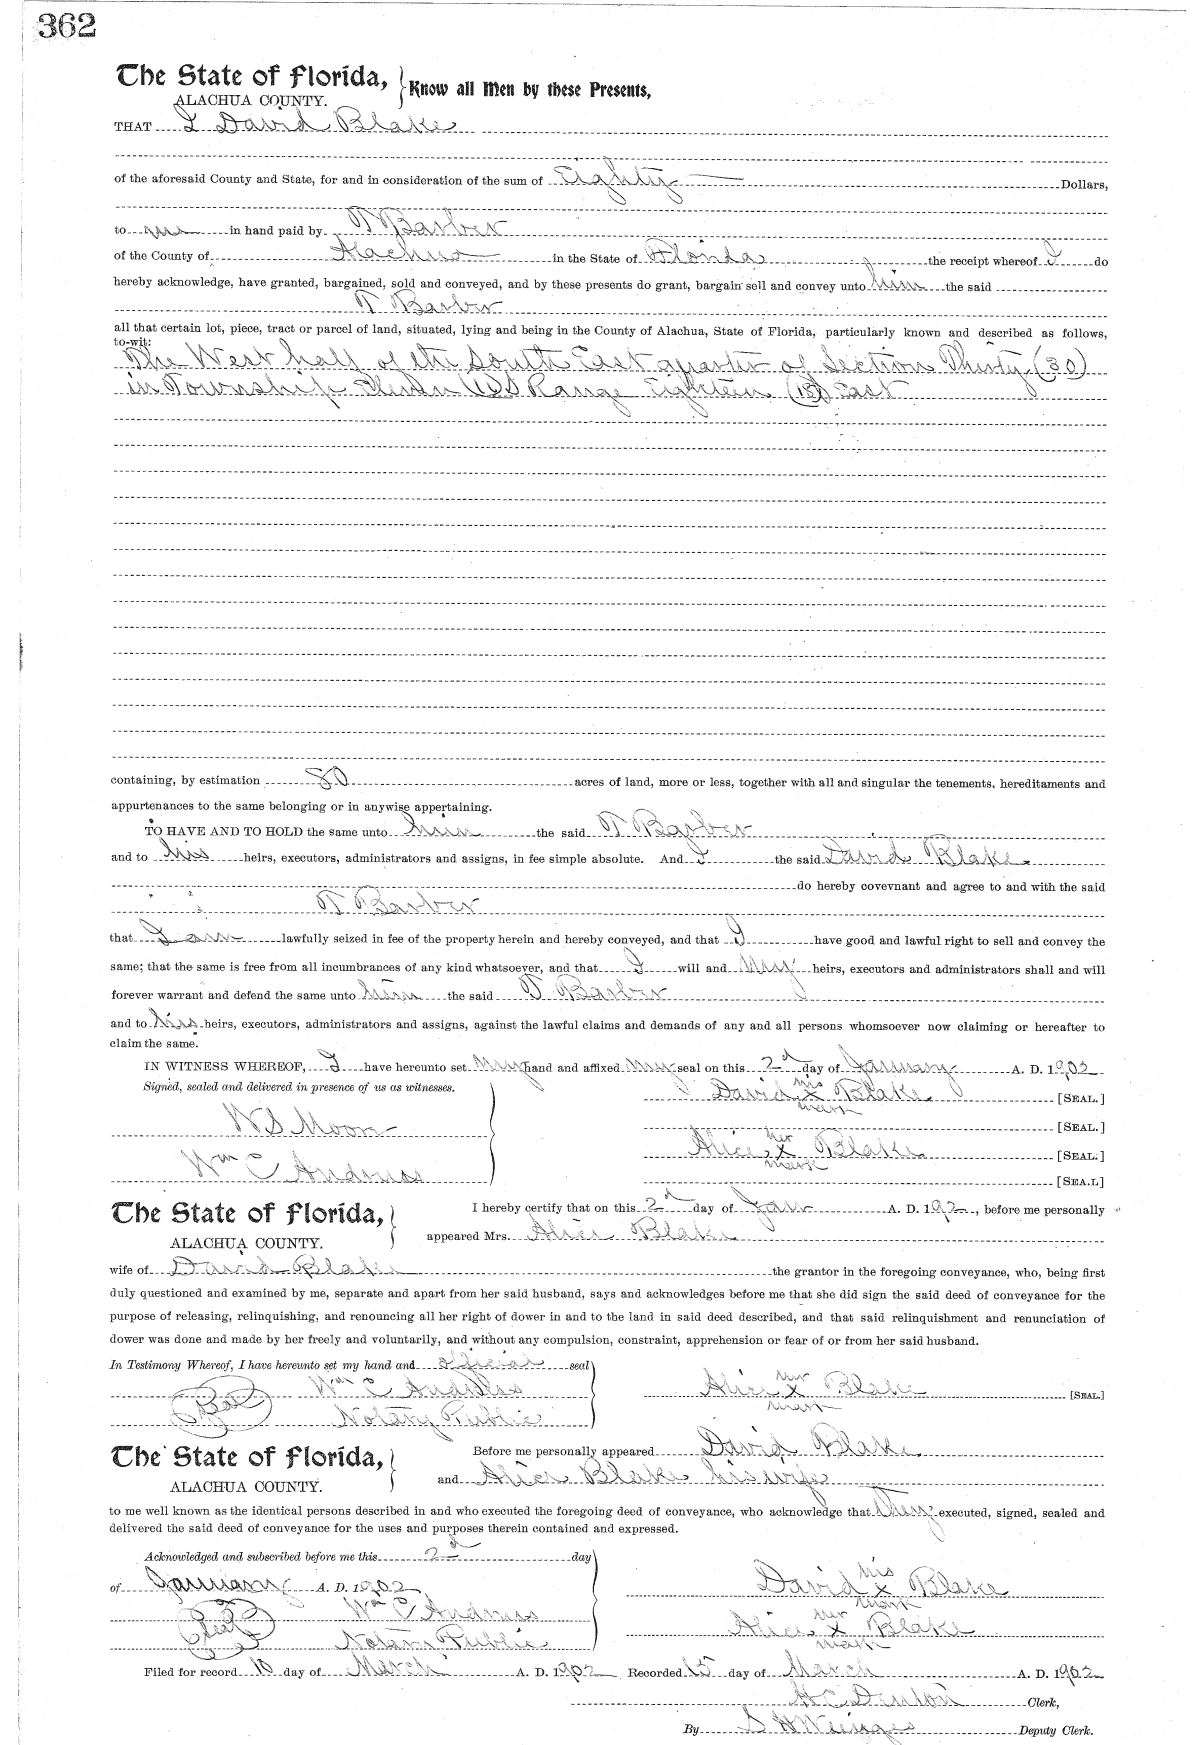 362
The State of Florida, Know all Men by these Presents,
ALACHUA COUNTY.
THAT I David Blake
of the aforesaid County and State, for and in consideration of the sum of Eighty Dollars,
to me in hand paid by T Barber
of the County of Alachua in the State of Florida, the receipt whereof I do
hereby acknowledge, have granted, bargained, sold and conveyed, and by these presents do grant, bargain sell and convey unto him the said
T Barber
all that certain lot, piece, tract or parcel of land, situated, lying and being in the County of Alachua, State of Florida, particularly known and described as follows,
to-wit:
The West half of the South East quarter of Section Thirty (30)
in Township Range Eighteen (18) East
containing, by estimation 80 acres of land, more or less, together with all and singular the tenements, hereditaments and
appurtenances to the same belonging or in anywise appertaining.
TO HAVE AND TO HOLD the same unto him the said T Barber
and to his heirs, executors, administrators and assigns, in fee simple absolute. And I the said David Blake
do hereby covevnant and agree to and with the said
T Barber
that I am lawfully seized in fee of the property herein and hereby conveyed, and that I have good and lawful right to sell and convey the
same; that the same is free from all incumbrances of any kind whatsoever, and that I will and my heirs, executors and administrators shall and will
forever warrant and defend the same unto him the said T Barber
and to his heirs, executors, administrators and assigns, against the lawful claims and demands of any and all persons whomsoever now claiming or hereafter to
claim the same.
IN WITNESS WHEREOF, I have hereunto set my hand and affixed my seal on this 2d day of January A. D. 1902
Signed, sealed and delivered in presence of us as witnesses.
David his x mark Blake [SEAL.]
W S Moon [SEAL.]
Alice her x mark Blake [SEAL.]
Wm C Andruss [SEAL]
The State of Florida, I hereby certify that on this 2d day of Jan A. D. 1902, before me personally
ALACHUA COUNTY. appeared Mrs. Alice Blake
wife of David Blake the grantor in the foregoing conveyance, who, being first
duly questioned and examined by me, separate and apart from her said husband, says and acknowledges before me that she did sign the said deed of conveyance for the
purpose of releasing, relinquishing, and renouncing all her right of dower in and to the land in said deed described, and that said relinquishment and renunciation of
dower was done and made by her freely and voluntarily, and without any compulsion, constraint, apprehension or fear of or from her said husband.
In Testimony Whereof, I have hereunto set my hand and official seal
Wm C Andruss Alice her x mark Blake [SEAL.]
Notary Public
The State of Florida, Before me personally appeared David Blake
ALACHUA COUNTY. and Alice Blake his wife
to me well known as the identical persons described in and who executed the foregoing deed of conveyance, who acknowledge that they executed, signed, sealed and
delivered the said deed of conveyance for the uses and purposes therein contained and expressed.
Acknowledged and subscribed before me this 2d day
of January A. D. 1902 David his x mark Blake
Seal Wm C Andruss
Alice her x mark Blake
Notary Public
Filed for record 10 day of March A. D. 1902 Recorded 15 day of March A. D. 1902
H C Denton Clerk,
By S H Wienges Deputy Clerk.